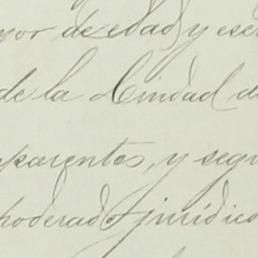 yor de edad y esc
de la Ciudad d
parentes, y segu
poderado jurídico